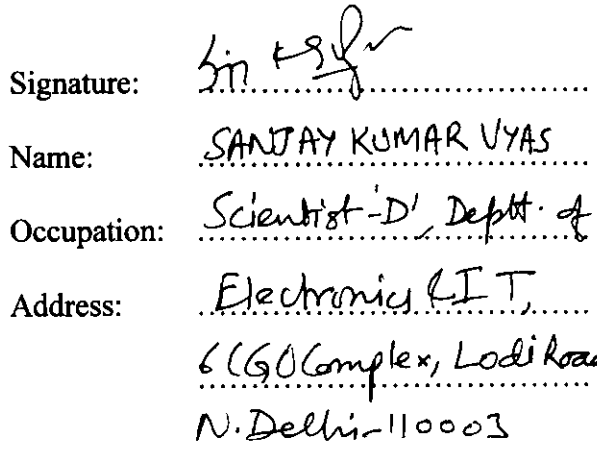 Signature:
Name: SANJAY KUMAR VYAS
Occupation: Scientist-'D', Deptt. of
Address: Electronics & I T,
6 CGO Complex, Lodi Road
N. Delhi-110003